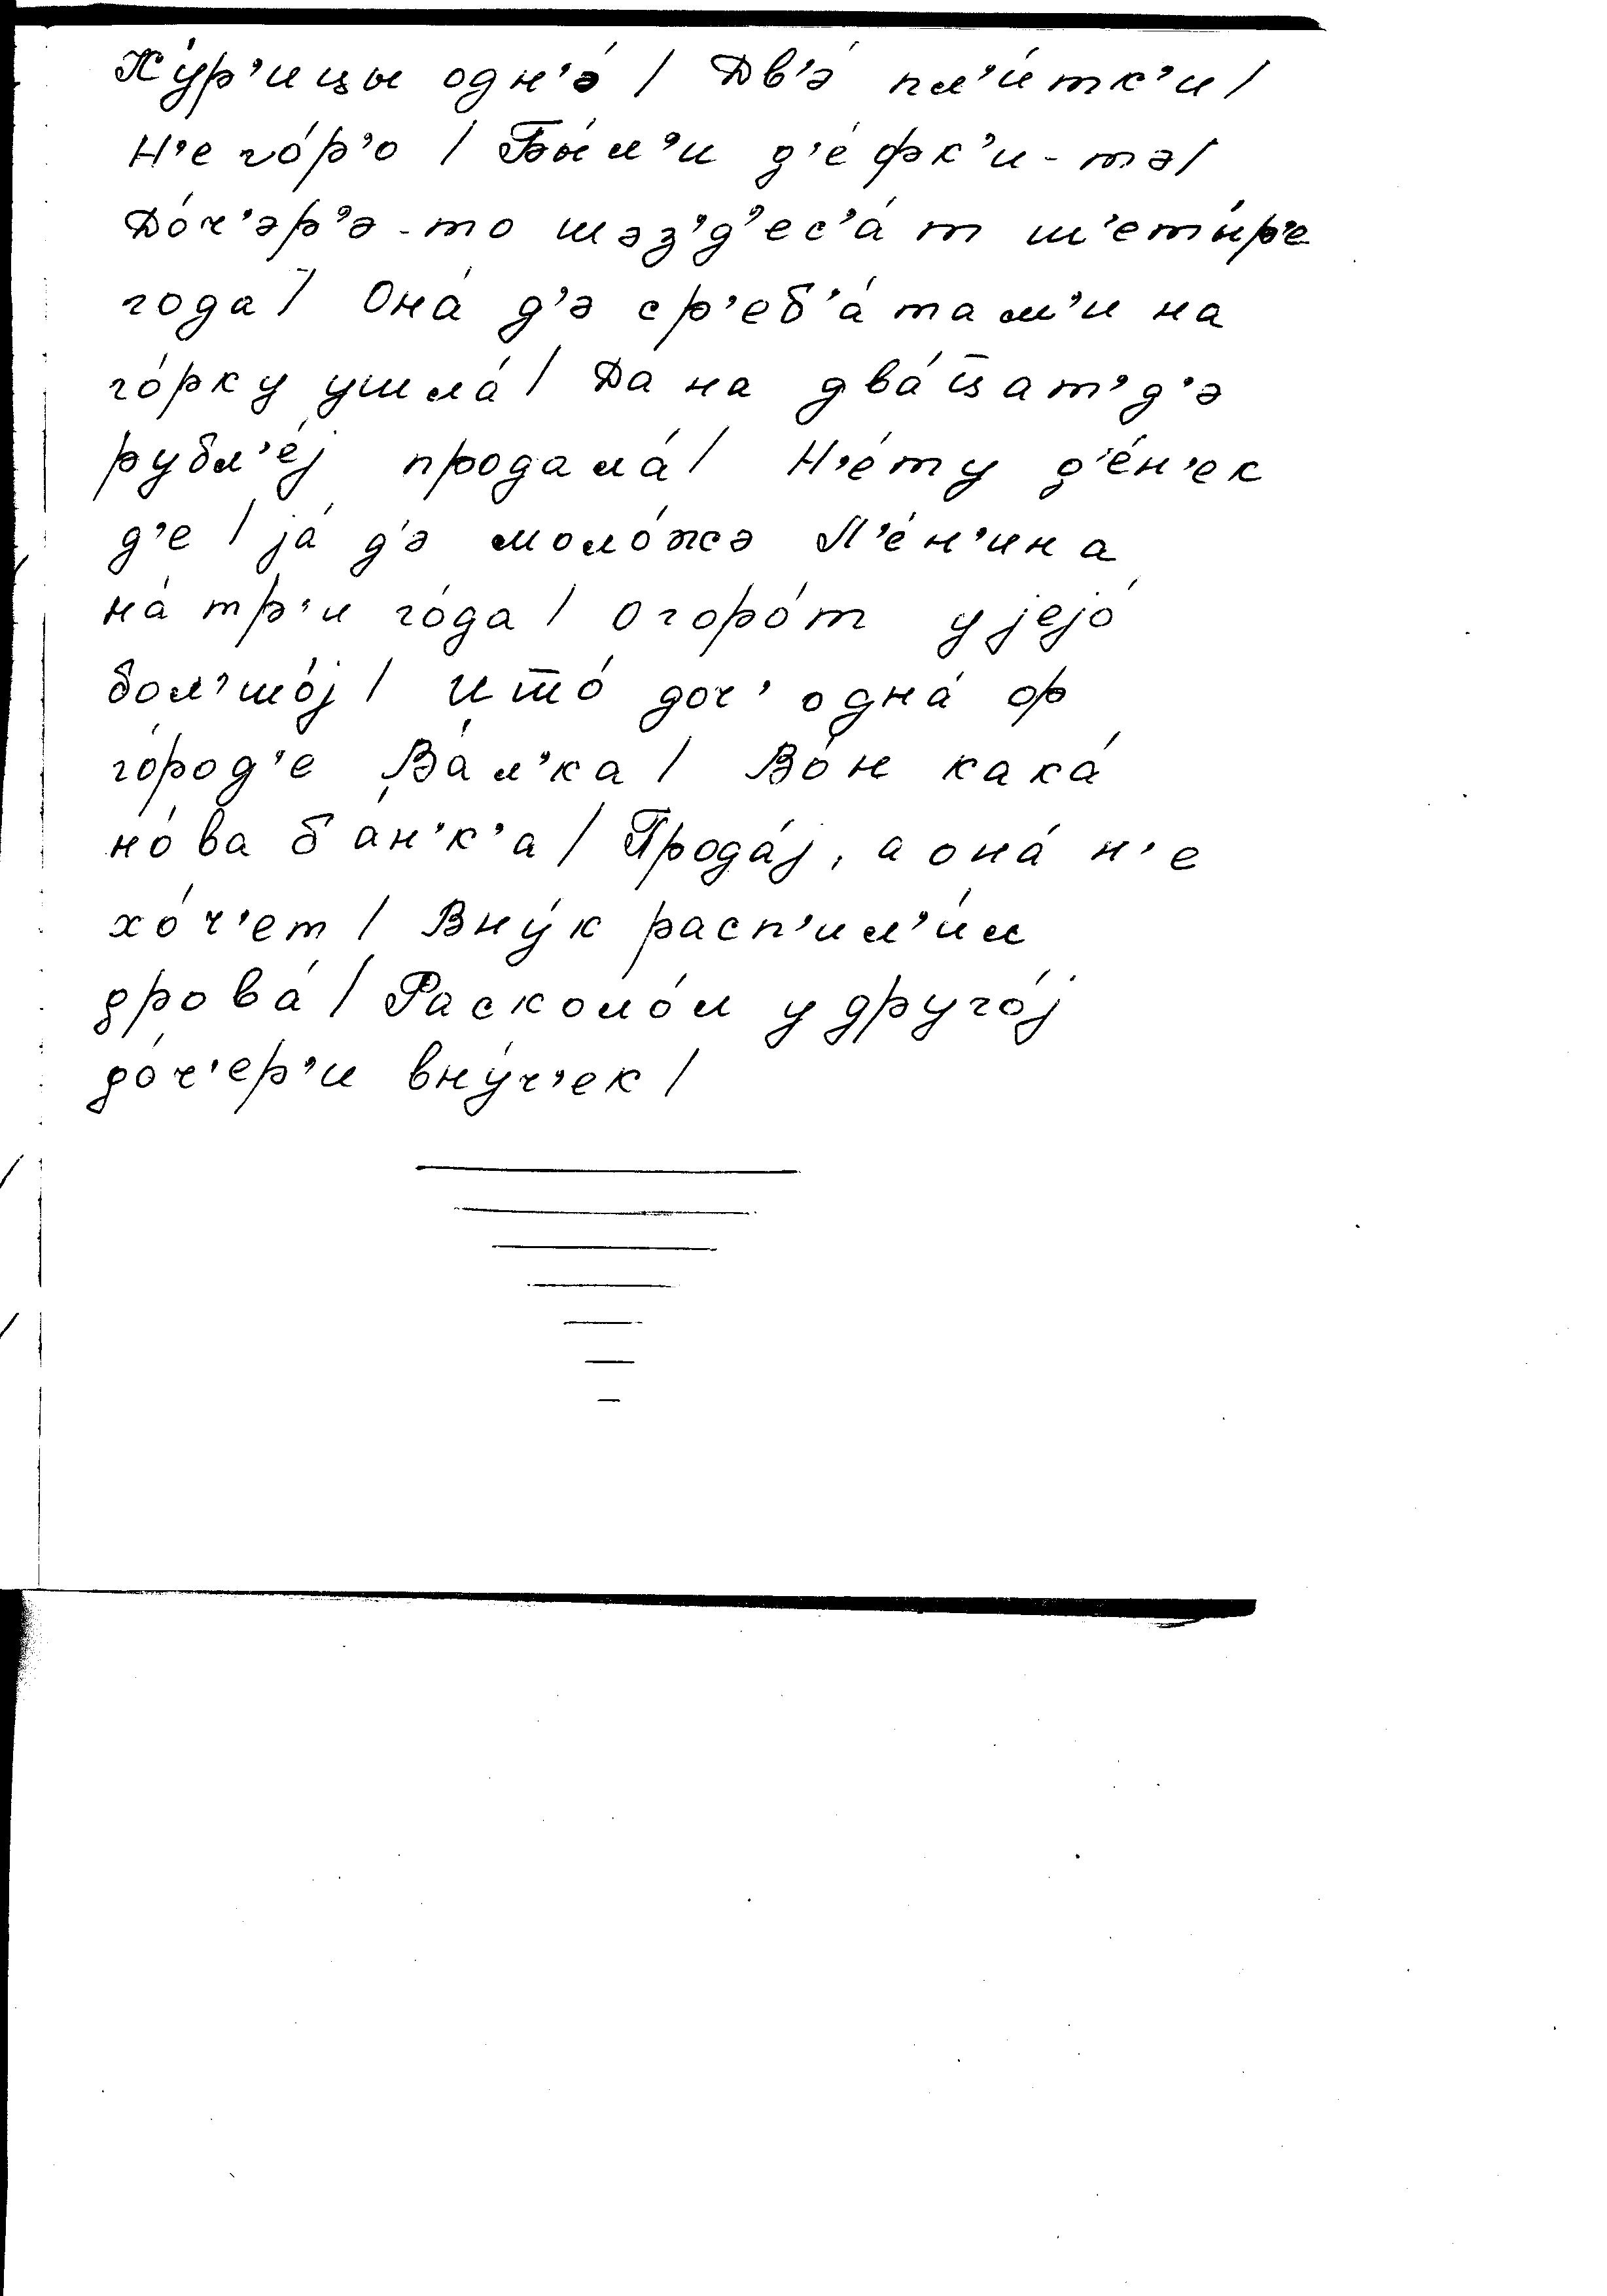 Ку́р'ицы одн'э́ / Дв'э́ пл'и́тк'и /
Н'е го́р'о / Бы́л'и д'е́фк'и-тэ/
До́ч'эр'э-то шэз'д'ес'а́т ш'еты́р'е
года / Она́ д'э ср'еб'а́там'и на
го́рку ушла́ / Да на два́ц̅ат'д'э
рубл'е́j продала́ / Н'е́ту д'е́н'ек
д'е / jа́ д'э моло́жэ Л'е́н'ина
на́ тр'и го́да / Огоро́т у jejо́
бол'шо́j / И т̅о́ доч' одна́ ф
го́род'е Ва́л'ка / Во́н кака́
но́ва ба́н'к'а / Прода́j, а она́ н'е
хо́ч'ет / Вну́к расп'ил'и́л
дрова́ / Расколо́л у друго́j
до́ч'ер'и вну́ч'ек /